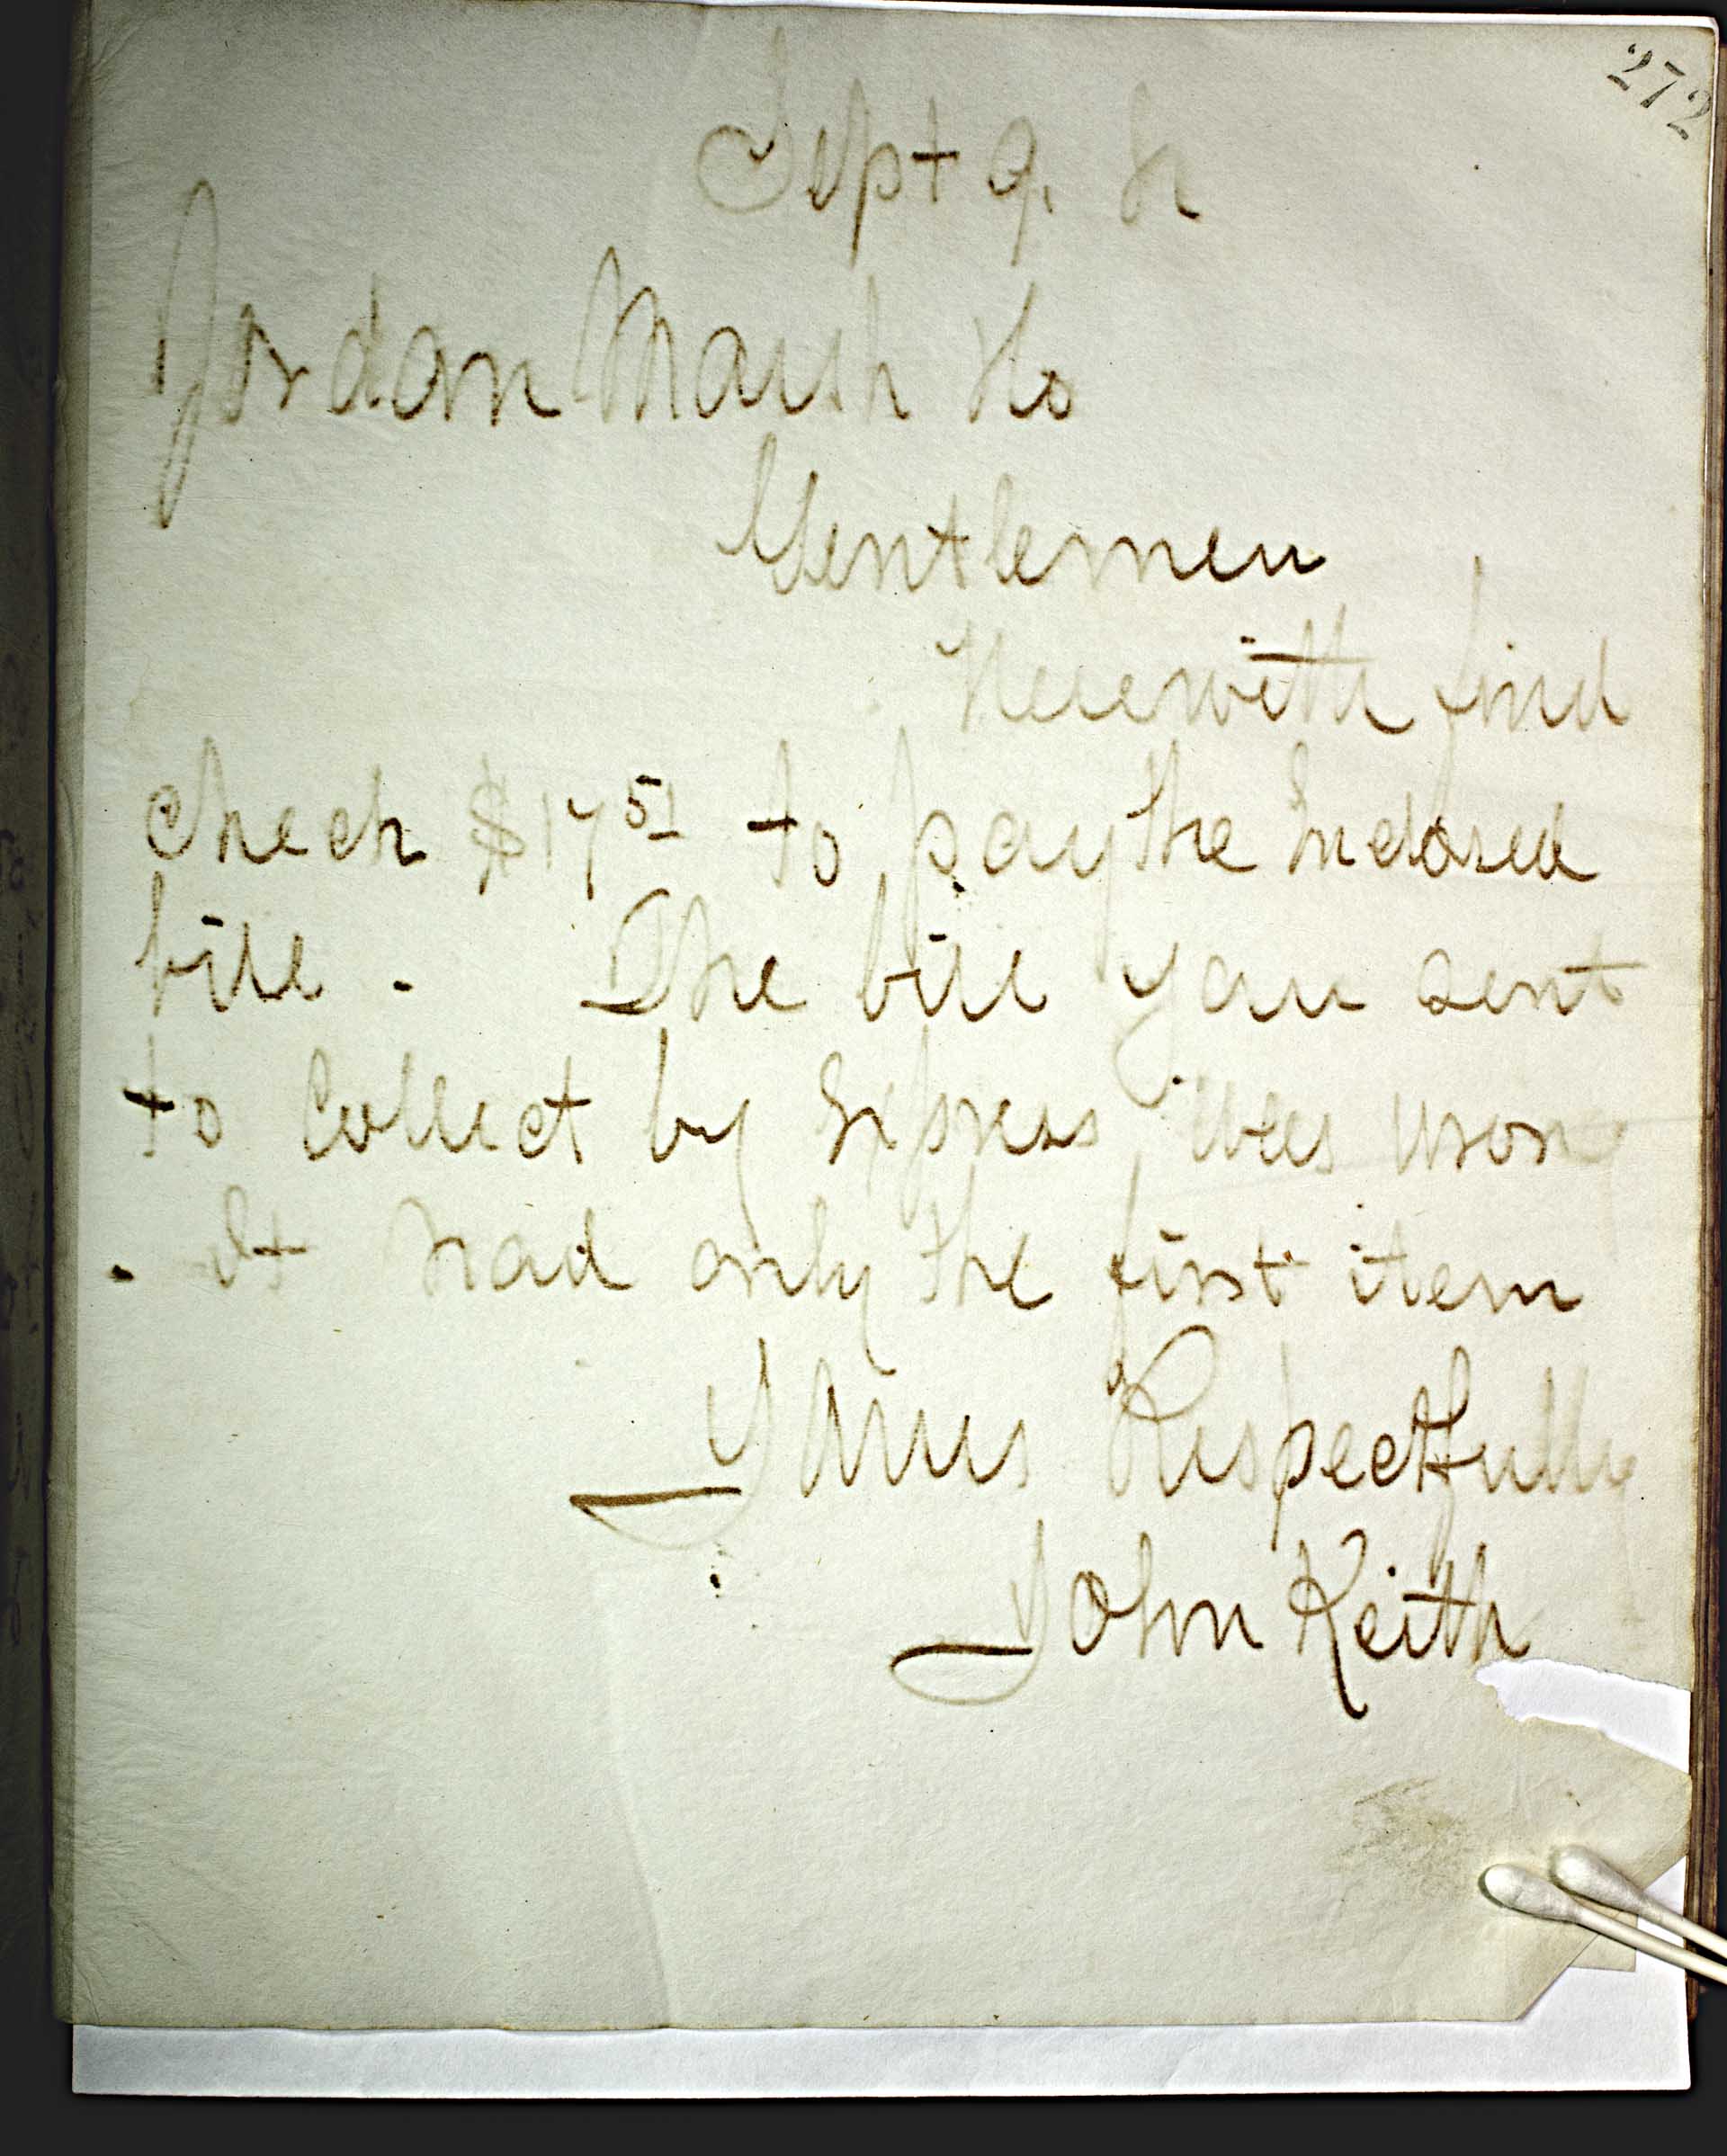 272
Sept 9,
Jordan Marsh &Co
Gentlemen
Herewith find
Check $17 51 to pay the Enclosed
bill. The bill you sent
to Collect by Express was wrong
. It had only the first item
Yours Respectfully
John Keith